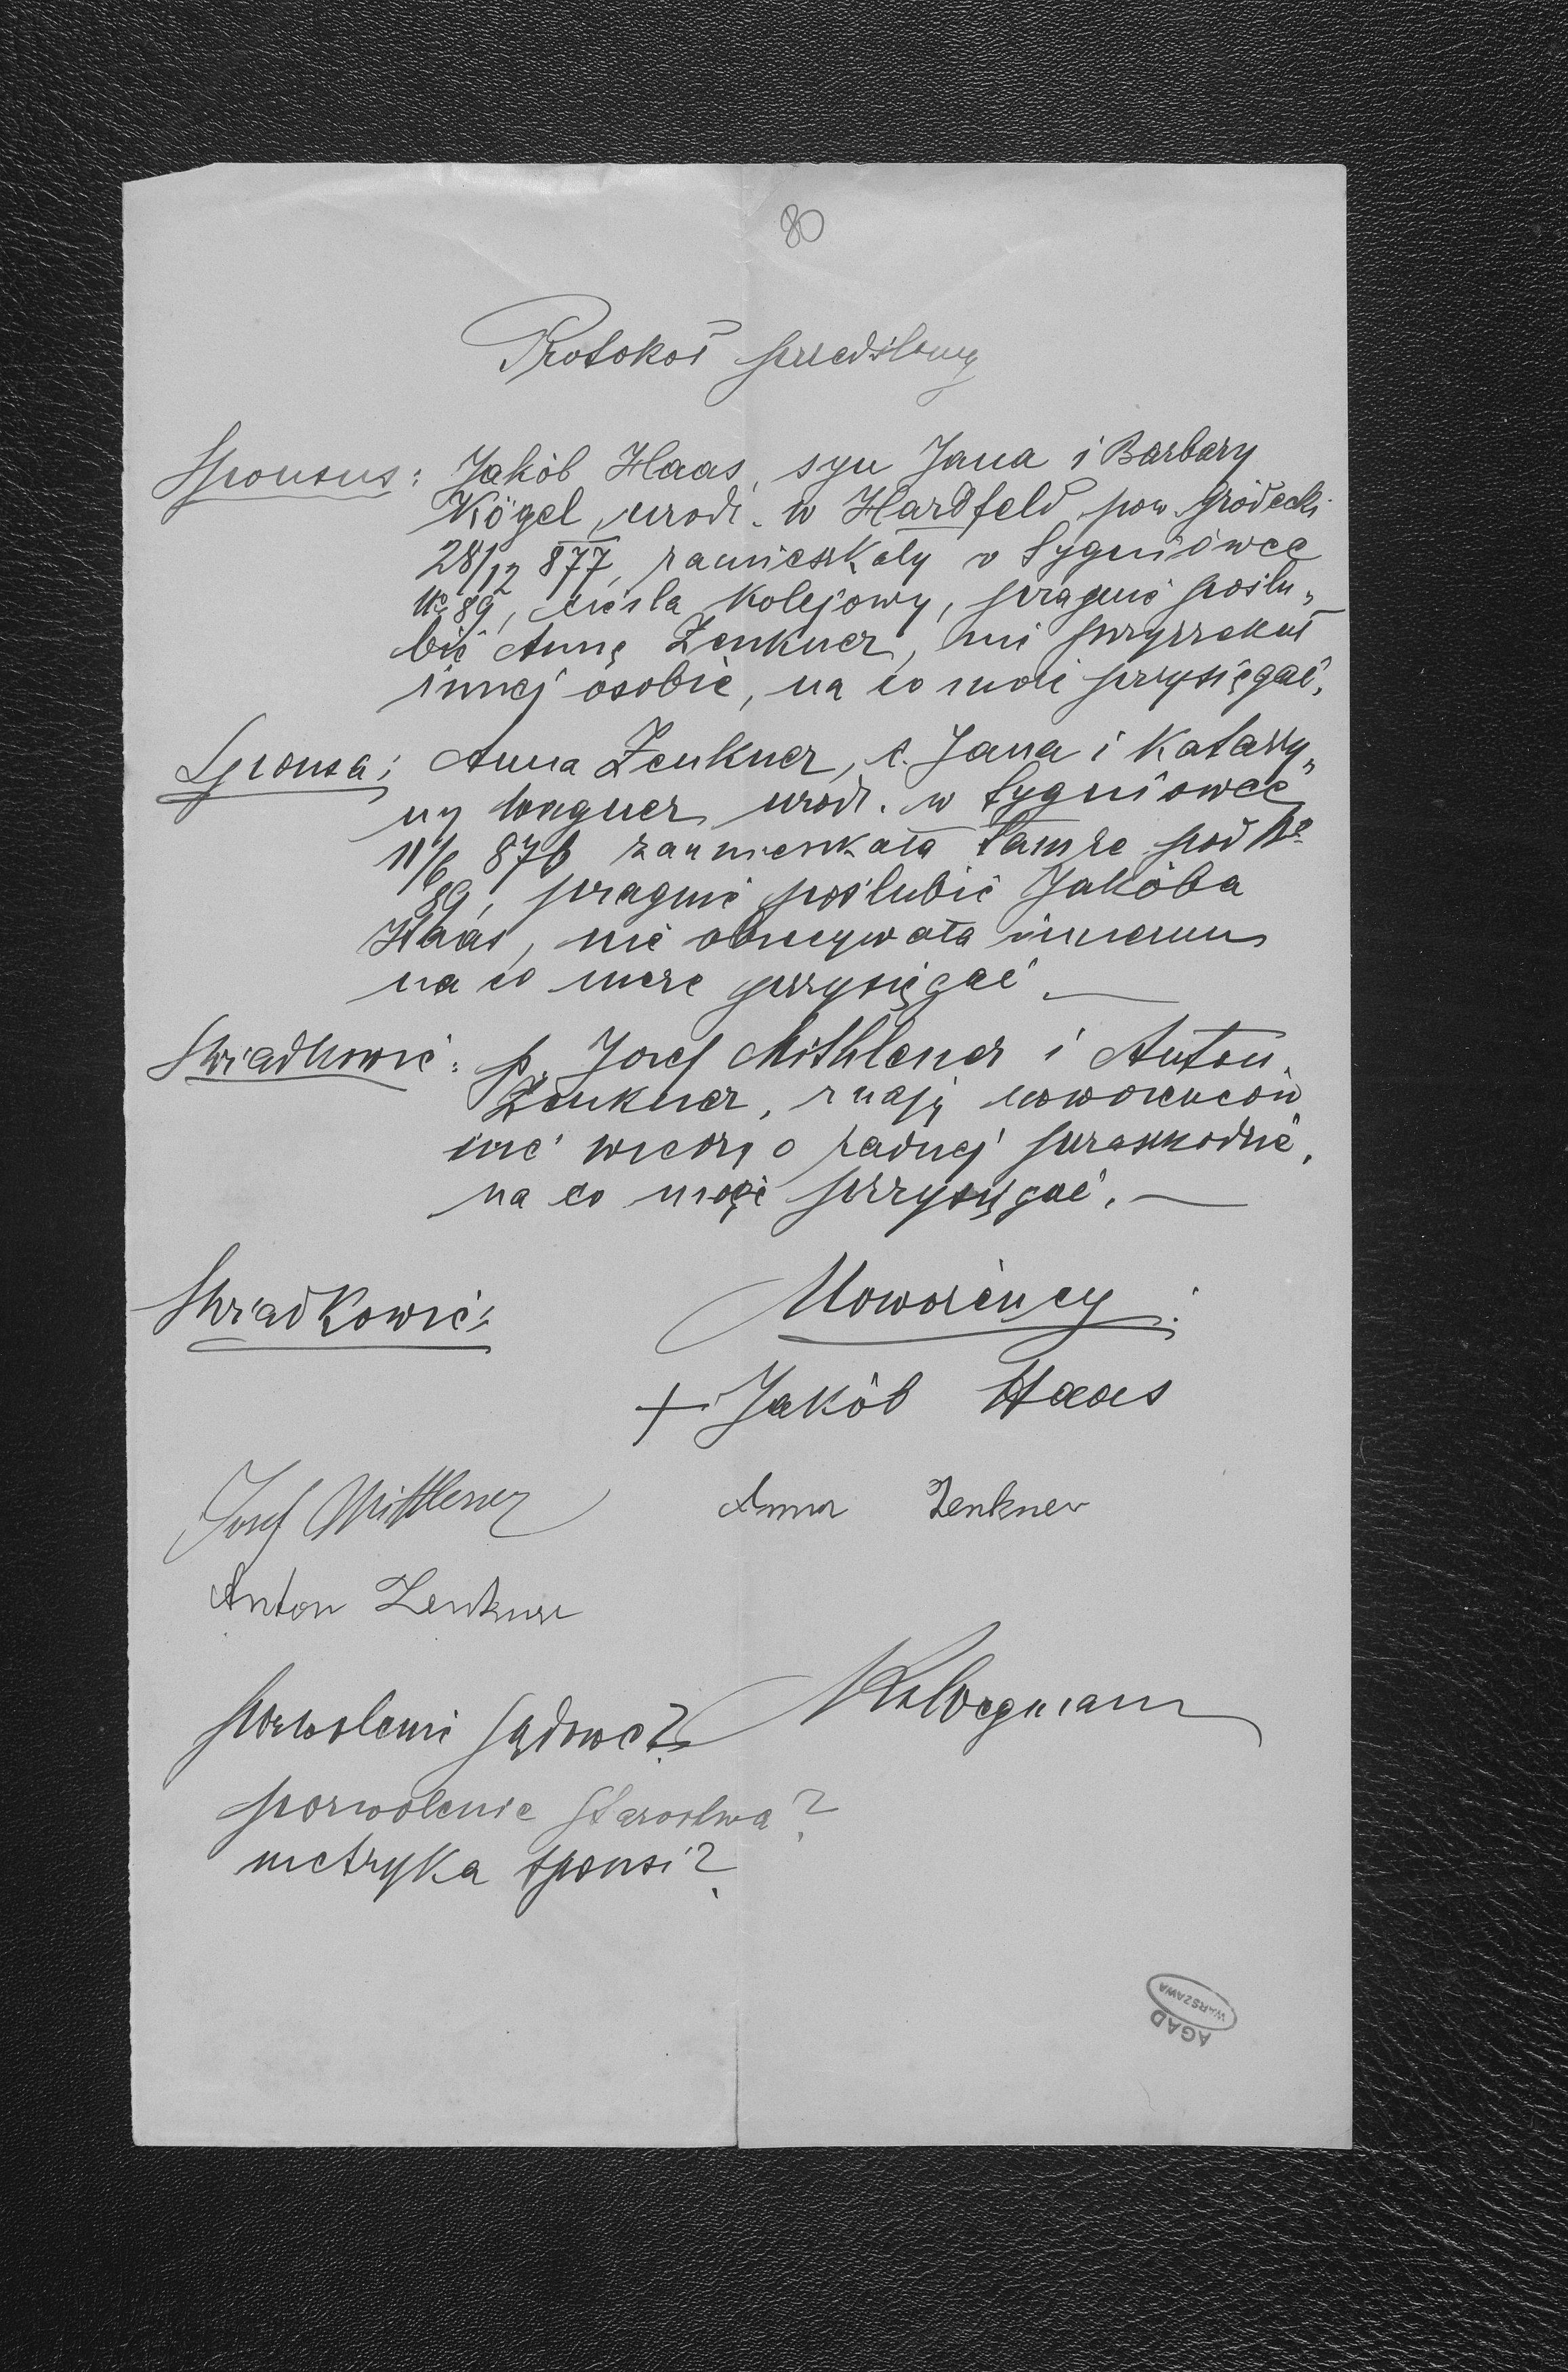 80
Protokół przedślubny
Sponsus: Jakób Haas, syn Jana i Barbary
Kögel, urodz. w Hardfeld pow. gródecki
28/12 877, zamieszkały w Sygniówce
No 89, cieśla kolejowy, pragnie poślu„
bić Annę Zenkner, nie przyrzekał
innej osobie, na co może przysięgać.
Sponsa: Anna Zenkner, c. Jana i Katarzy„
ny Wagner urodz. w Sygniówce
11/6 876 zamieszkała tamże pod No
89, pragnie poślubić Jakóba
Haas, nie obiecywała innemu
na co może przysięgać. —
Świadkowie: p. Josef Mithlener i Anton
Zenkner, znają nowożeńców
nie wiedzą o żadnej przeszkodzie,
na co mogą przysięgać. —
Świadkowie: Nowożeńcy:
+ Jakób Haas
Josef Mittlener Anna Zenkner
Anton Zenkner
pozwolenie sądowe?
pozwolenie Starostwa?
metryka sponsi?
AGAD
WARSZAWA